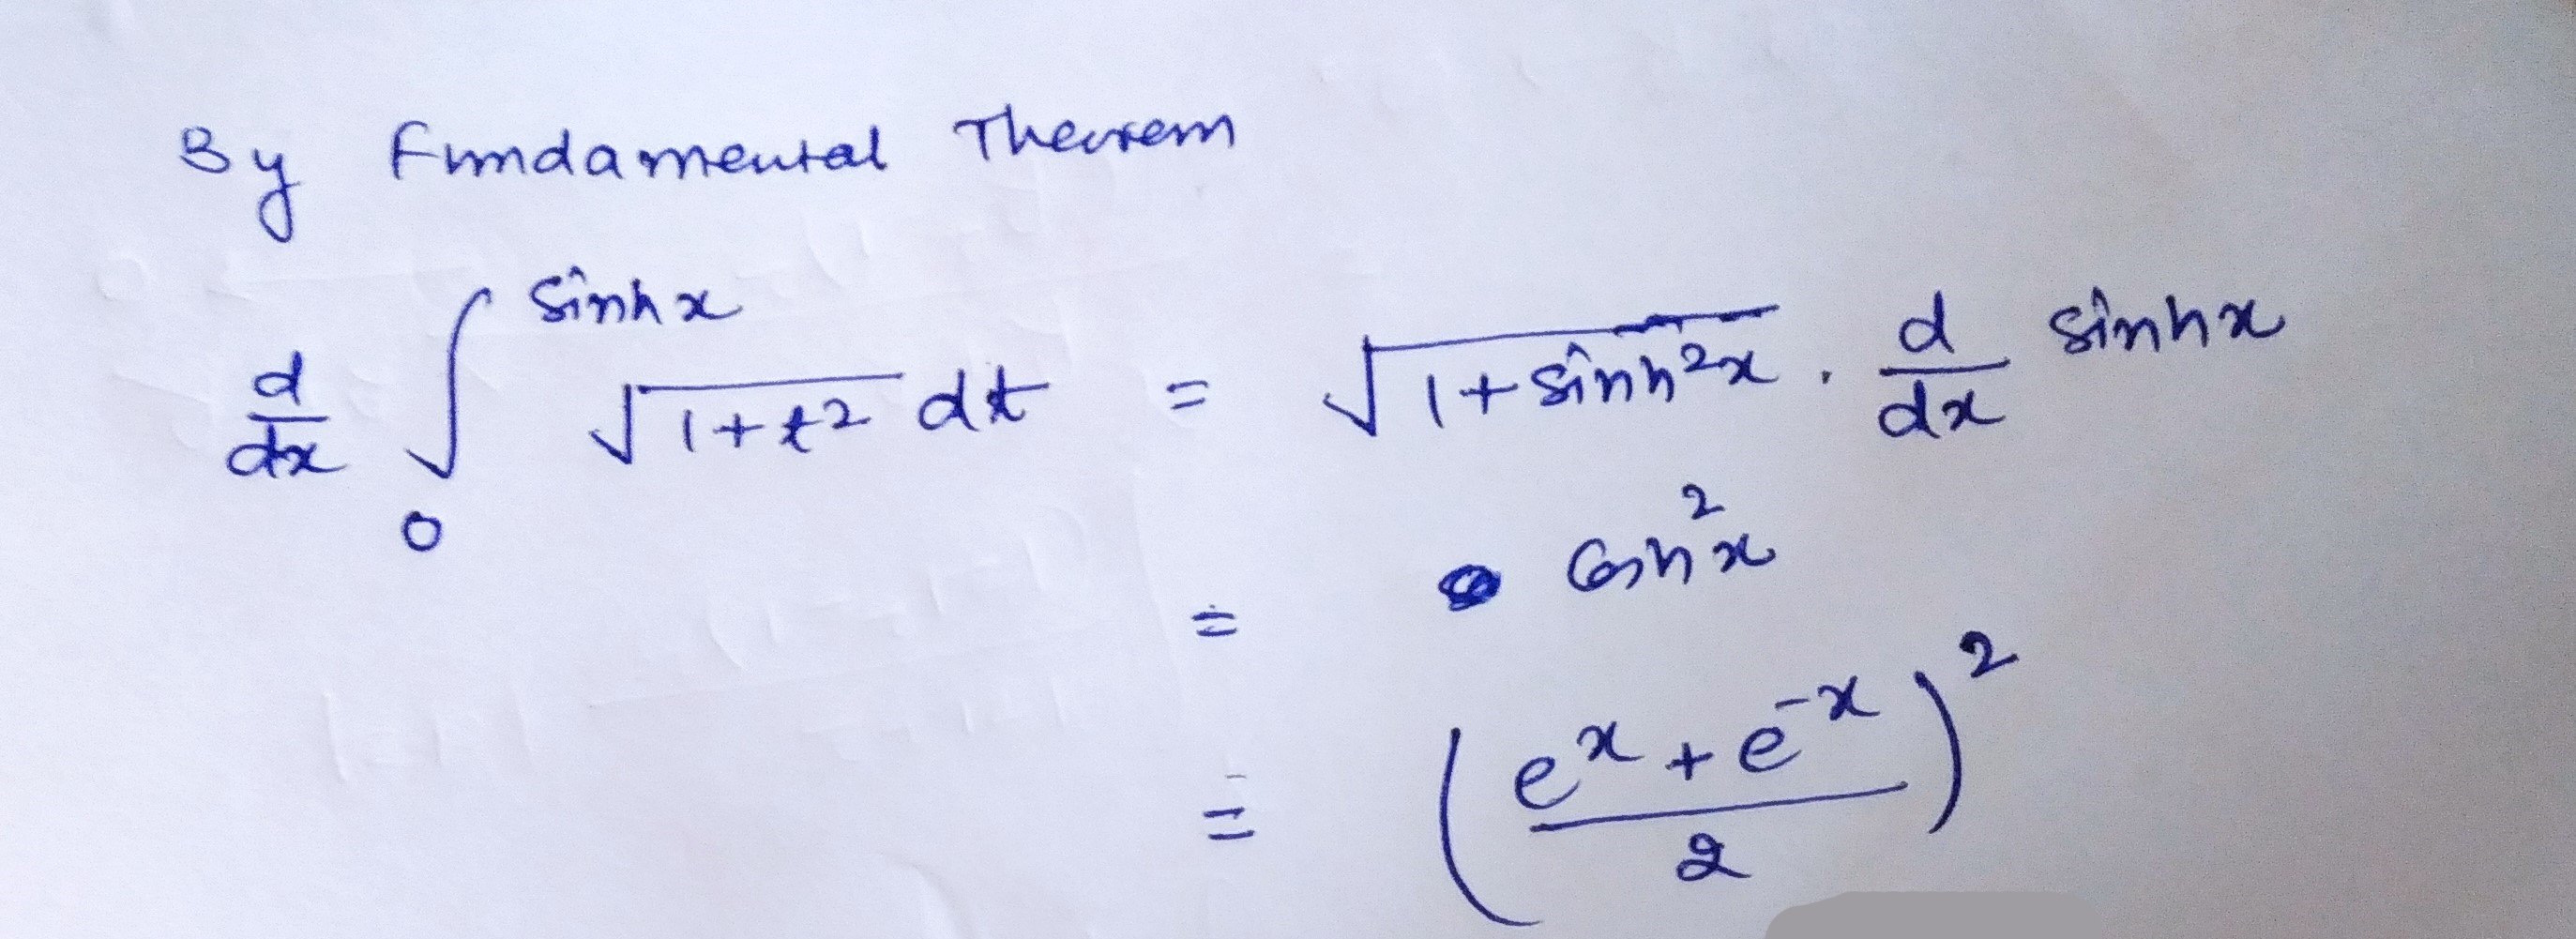 By Fundamental Theorem
d/dx ∫₀^{sinh x} √(1+t²) dt = √(1+sinh²x) . d/dx sinhx
= Cosh²x
= ((e^x + e^{-x})/2)²